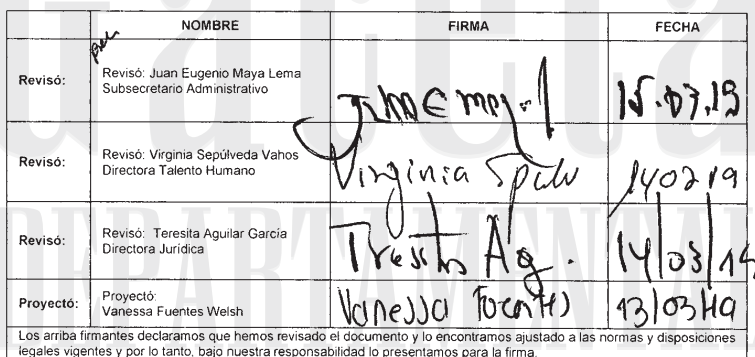 NOMBRE FIRMA FECHA
Revisó: Revisó: Juan Eugenio Maya Lema
Subsecretario Administrativo 15.03.19
Revisó: Revisó: Virginia Sepúlveda Vahos
Directora Talento Humano Virginia
Revisó: Revisó: Teresita Aguilar García
Directora Jurídica 14/03/19
Proyectó: Proyectó:
Vanessa Fuentes Welsh Vanessa Fuentes 13/03/19
Los arriba firmantes declaramos que hemos revisado el documento y lo encontramos ajustado a las normas y disposiciones
legales vigentes y por lo tanto, bajo nuestra responsabilidad lo presentamos para la firma.
Gaceta
DEPARTAMENTAL